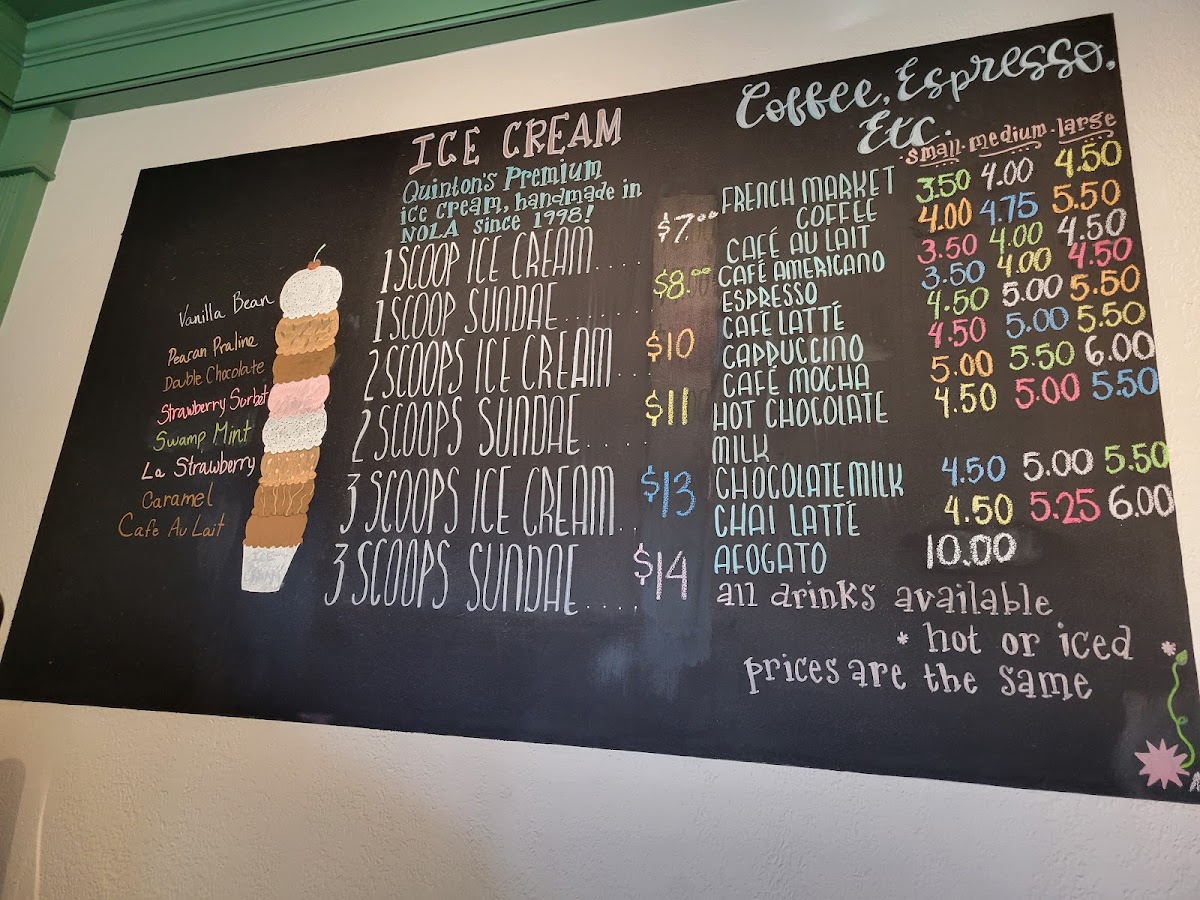 ICE CREAM
Quinton's Premium
ice cream, handmade in
NOLA since 1998!
1 SCOOP ICE CREAM.... $7.00
1 SCOOP SUNDAE........ $8.00
2 SCOOPS ICE CREAM... $10
2 SCOOPS SUNDAE...... $11
3 SCOOPS ICE CREAM.. $13
3 SCOOPS SUNDAE..... $14
Vanilla Bean
Peacan Praline
Double Chocolate
Strawberry Surbet
Swamp Mint
La Strawberry
Caramel
Cafe Au Lait
Coffee, Espresso,
Etc.
small medium large
FRENCH MARKET 3.50 4.00 4.50
COFFEE
CAFÉ AU LAIT 4.00 4.75 5.50
CAFÉ AMERICANO 3.50 4.00 4.50
ESPRESSO 3.50 4.00 4.50
CAFÉ LATTÉ 4.50 5.00 5.50
CAPPUCCINO 4.50 5.00 5.50
CAFÉ MOCHA 5.00 5.50 6.00
HOT CHOCOLATE 4.50 5.00 5.50
MILK
CHOCOLATE MILK 4.50 5.00 5.50
CHAI LATTÉ 4.50 5.25 6.00
AFOGATO 10.00
all drinks available
* hot or iced *
prices are the same